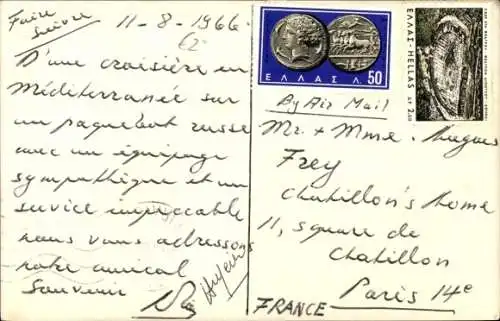 Faire
suivre
11-8-1966
62
D'une croisière en
Méditerranée sur
un paquebot russe
avec un équipage
sympathique et un
service impeccable
nous vous adressons
notre amical
souvenir
ΕΛΛΑΣ Λ. 50
ΕΛΛΑΣ-HELLAS ΔΡ 2.50
By Air Mail
Mr. + Mme. Hugues
Frey
Chatillon's Home
11, square de
Chatillon
Paris 14e
FRANCE